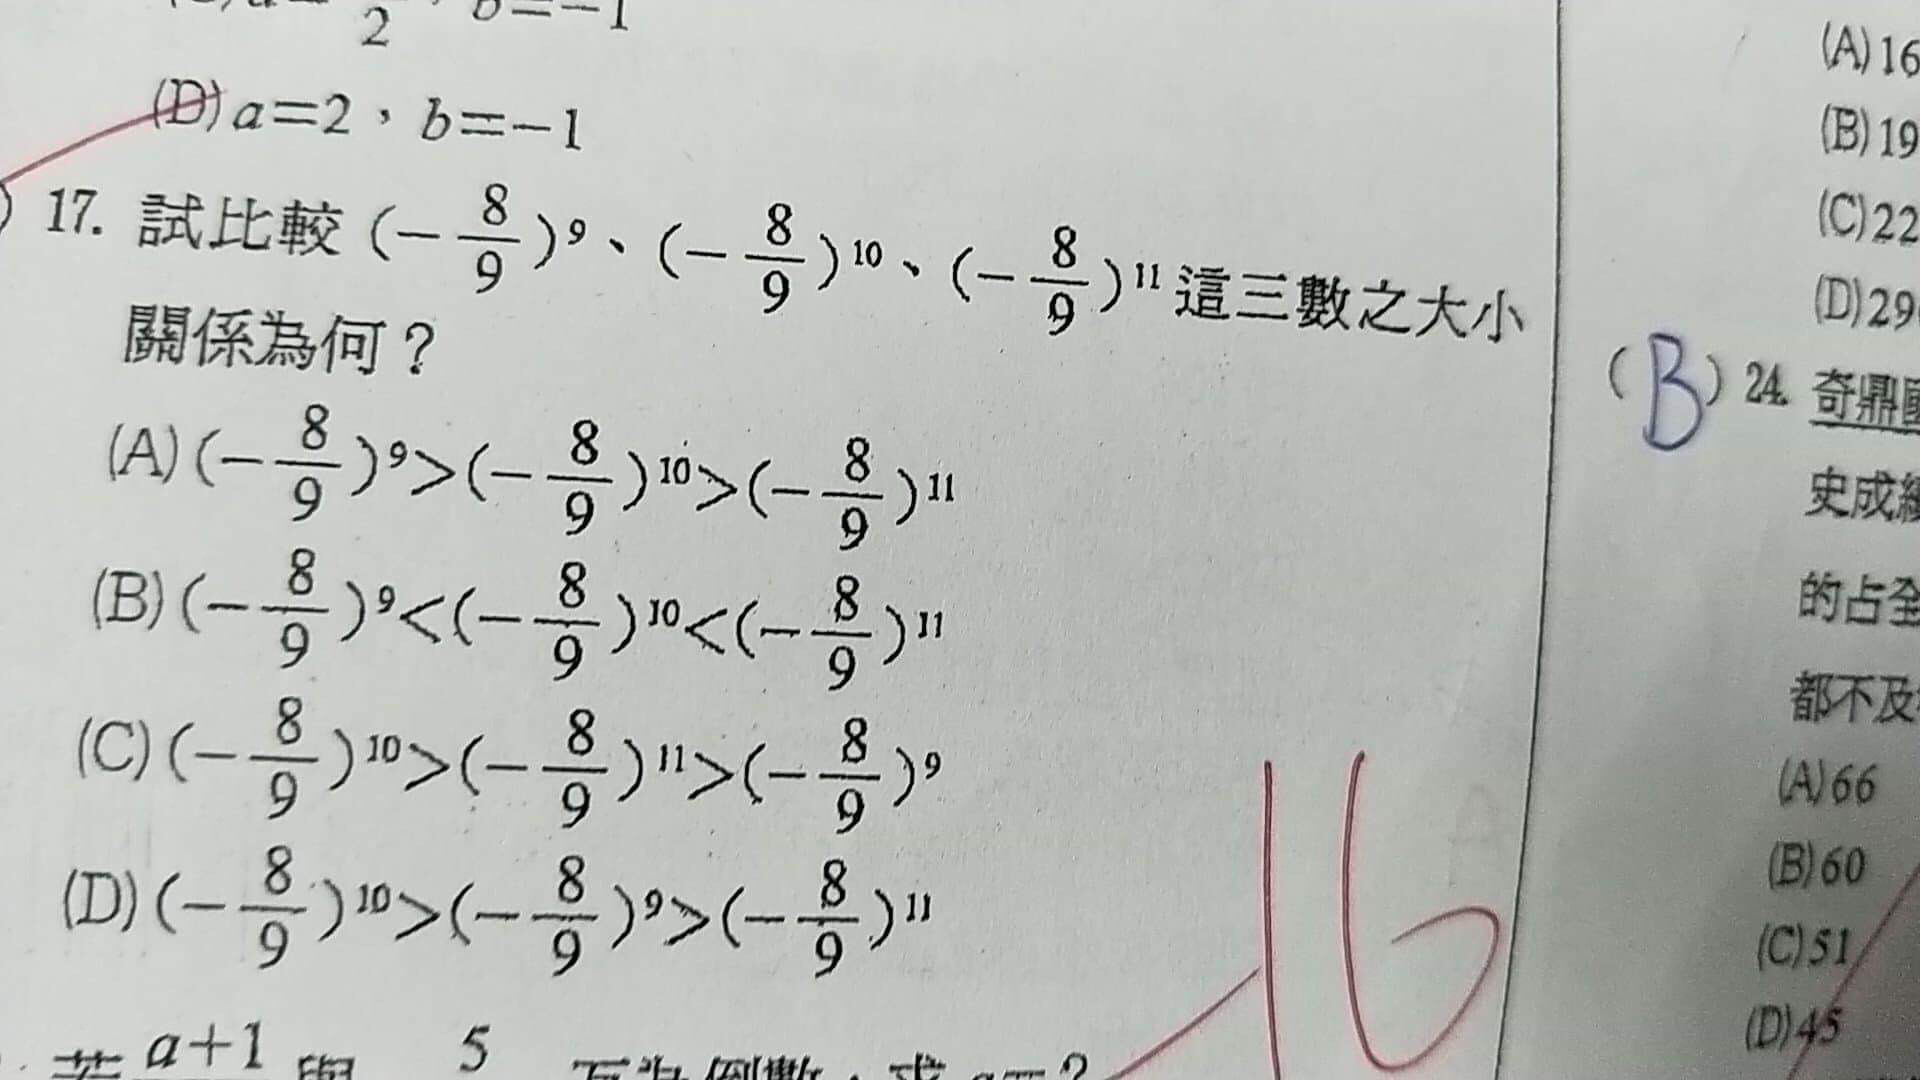 2, b=-1
(D) a=2，b=-1
17. 試比較 (-8/9)⁹、(-8/9)¹⁰、(-8/9)¹¹ 這三數之大小
關係為何？
(A) (-8/9)⁹>(-8/9)¹⁰>(-8/9)¹¹
(B) (-8/9)⁹<(-8/9)¹⁰<(-8/9)¹¹
(C) (-8/9)¹⁰>(-8/9)¹¹>(-8/9)⁹
(D) (-8/9)¹⁰>(-8/9)⁹>(-8/9)¹¹
若 a+1 與 5 互為倒數，求 a=？
16
(A) 16
(B) 19
(C) 22
(D) 29
(B) 24. 奇鼎
史成
的占全
都不及
(A) 66
(B) 60
(C) 51
(D) 45